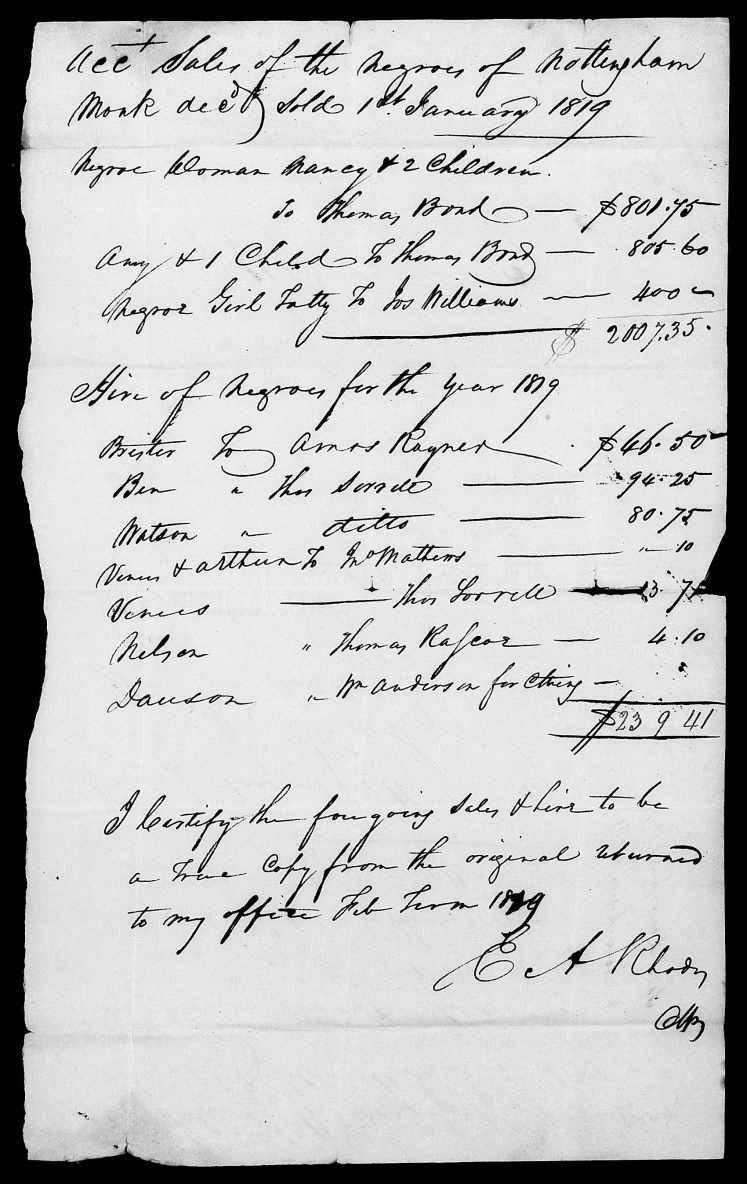 Acct Sales of the negroes of Nottingham
Monk decd Sold 1st January 1819
Negroe Woman Nancy & 2 Children.
To Thomas Bond — $801.75
Amy & 1 Child To Thomas Bond — 805.60
Negroe Girl Tatty To Jos Williams — 400 -
$ 2007.35.
Hire of Negroes for the year 1819
Brister To Amos Rayner $46.50
Ben " Thos Sorrell — 94.25
Watson " ditto — 80.75
Venus & Arthur To Jno Mathews — " 10
Venus — Thos Sorrell — 13 7
Nelson " Thomas Rascoe — 4.10
Dawson " Wm Anderson for Cthing —
$239 41
I Certify the foregoing Sales & hire to be
a True Copy from the original returned
to my office Feb Term 1819
E A Rhodes
Clk